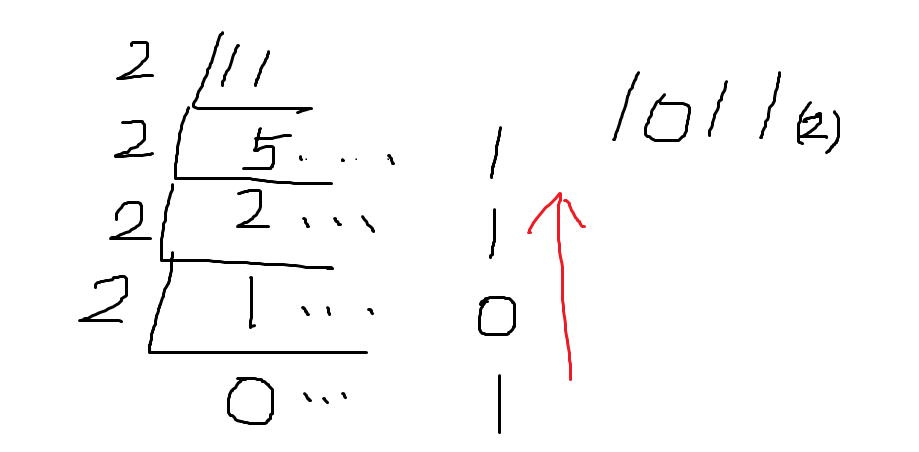 2 11
2 5 ... 1
2 2 ... 1
2 1 ... 0
0 ... 1
1011(2)